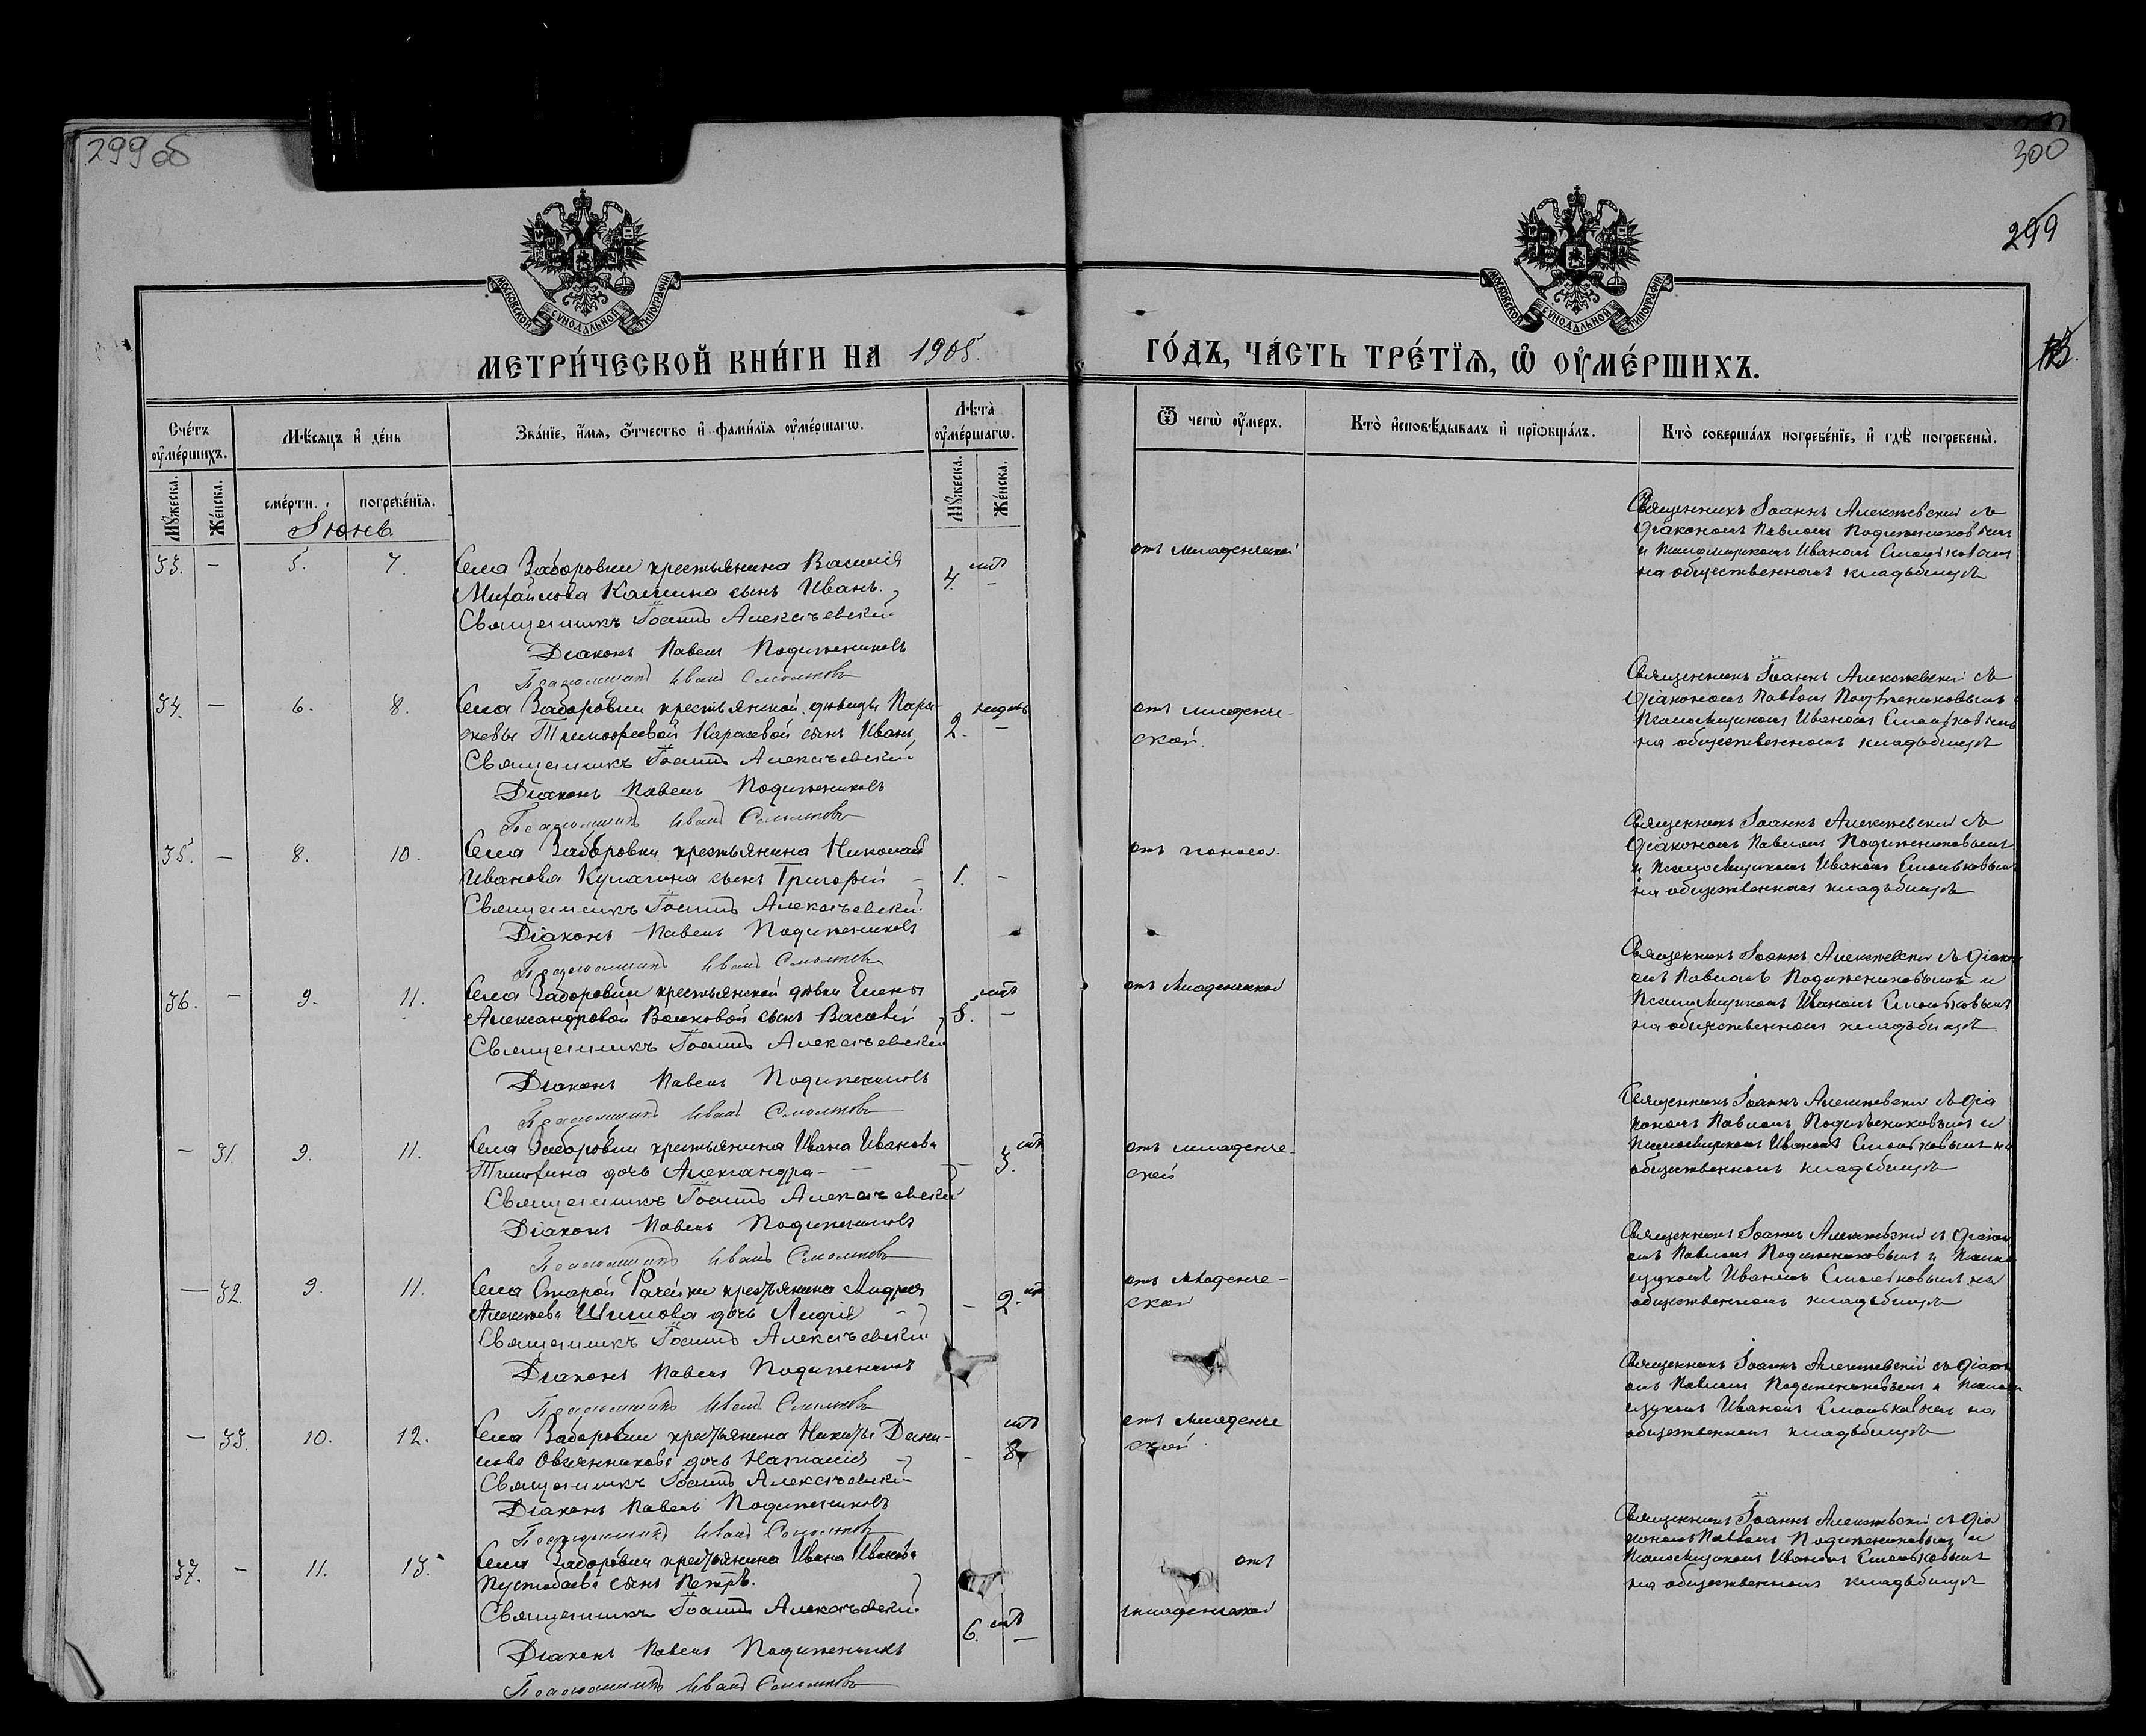 299 об
300
299
МОСКОВСКОЙ СѴНОДАЛЬНОЙ ТИПОГРАФІИ
МОСКОВСКОЙ СѴНОДАЛЬНОЙ ТИПОГРАФІИ
МЕТРИ́ЧЕСКОЙ КНИ́ГИ НА 1905.
ГО́ДЪ, ЧА́СТЬ ТРЕ́ТІѦ, Ѡ ОУ҆МЕ́РШИХЪ.
Сче́тъ оу҆ме́ршихъ.
Мѣ́сяцъ и҆ де́нь
Зва́нїе, и҆́мѧ, о҆́тчество и҆ фами́лїѧ оу҆ме́ршагѡ.
Лѣ́та оу҆ме́ршагѡ.
Ѿ чегѡ̀ оу҆́меръ.
Кто̀ и҆сповѣ́дывалъ и҆ прїѡбща́лъ.
Кто̀ соверша́лъ погребе́нїе, и҆ гдѣ̀ погребены̀.
Мꙋ́жеска.
Же́нска.
сме́рти.
погребе́нїѧ.
Мꙋ́жеска.
Же́нска.
Іюнь
33. - 5. 7. Села Заборовки крестьянина Василія 4. - отъ младенческой
Михайлова Кашина сынъ Иванъ.
Священникъ Іоаннъ Алексѣевскій
Діаконъ Павелъ
Псаломщикъ Иванъ Смольковъ
Священникъ Іоаннъ Алексѣевскій съ
діакономъ Павломъ
и псаломщикомъ Иваномъ Смольковымъ
на общественномъ кладбищѣ
34. - 6. 8. Села Заборовки крестьянской дѣвицы Пара- 2. недѣль - отъ младенче-
скевы Тимофеевой Каразевой сынъ Иванъ ской.
Священникъ Іоаннъ Алексѣевскій
Діаконъ Павелъ
Псаломщикъ Иванъ Смольковъ
Священникъ Іоаннъ Алексѣевскій съ
діакономъ Павломъ
псаломщикомъ Иваномъ Смольковымъ
на общественномъ кладбищѣ
35. - 8. 10. Села Заборовки крестьянина Николая отъ поноса.
Иванова Кулагина сынъ Григорій - 1. -
Священникъ Іоаннъ Алексѣевскій
Діаконъ Павелъ
Псаломщикъ Иванъ Смольковъ
Священникъ Іоаннъ Алексѣевскій съ
діакономъ Павломъ
и псаломщикомъ Иваномъ Смольковымъ
на общественномъ кладбищѣ
36. - 9. 11. Села Заборовки крестьянской дѣвки Елены отъ младенческой
Александровой Волковой сынъ Василій -
Священникъ Іоаннъ Алексѣевскій
Діаконъ Павелъ
Псаломщикъ Иванъ Смольковъ
Священникъ Іоаннъ Алексѣевскій съ діакон
омъ Павломъ и
псаломщикомъ Иваномъ Смольковымъ
на общественномъ кладбищѣ
- 31. 9. 11. Села Заборовки крестьянина Ивана Иванова 3. отъ младенче-
дочь Александра - ской
Священникъ Іоаннъ Алексѣевскій
Діаконъ Павелъ
Псаломщикъ Иванъ Смольковъ
Священникъ Іоаннъ Алексѣевскій съ діа
кономъ Павломъ и
псаломщикомъ Иваномъ Смольковымъ на
общественномъ кладбищѣ
- 32. 9. 11. Села Старой Рачейки крестьянина Андрея - 2. отъ младенче-
Алексѣева Шишова дочь Лидія ской
Священникъ Іоаннъ Алексѣевскій
Діаконъ Павелъ
Псаломщикъ Иванъ Смольковъ
Священникъ Іоаннъ Алексѣевскій съ діакон
омъ Павломъ и псалом
щикомъ Иваномъ Смольковымъ на
общественномъ кладбищѣ
- 33. 10. 12. Села Заборовки крестьянина Никиты Дани- отъ младенче
лова Овчинникова дочь Наталія - 8 ской
Священникъ Іоаннъ Алексѣевскій
Діаконъ Павелъ
Псаломщикъ Иванъ Смольковъ
Священникъ Іоаннъ Алексѣевскій съ діакон
омъ Павломъ и псалом
щикомъ Иваномъ Смольковымъ на
общественномъ кладбищѣ
37. - 11. 13. Села Заборовки крестьянина Ивана Иванова отъ
Пустобаева сынъ Петръ.
Священникъ Іоаннъ Алексѣевскій 6. - младенческой
Діаконъ Павелъ
Псаломщикъ Иванъ Смольковъ
Священникъ Іоаннъ Алексѣевскій съ діа
кономъ Павломъ и
псаломщикомъ Иваномъ Смольковымъ
на общественномъ кладбищѣ